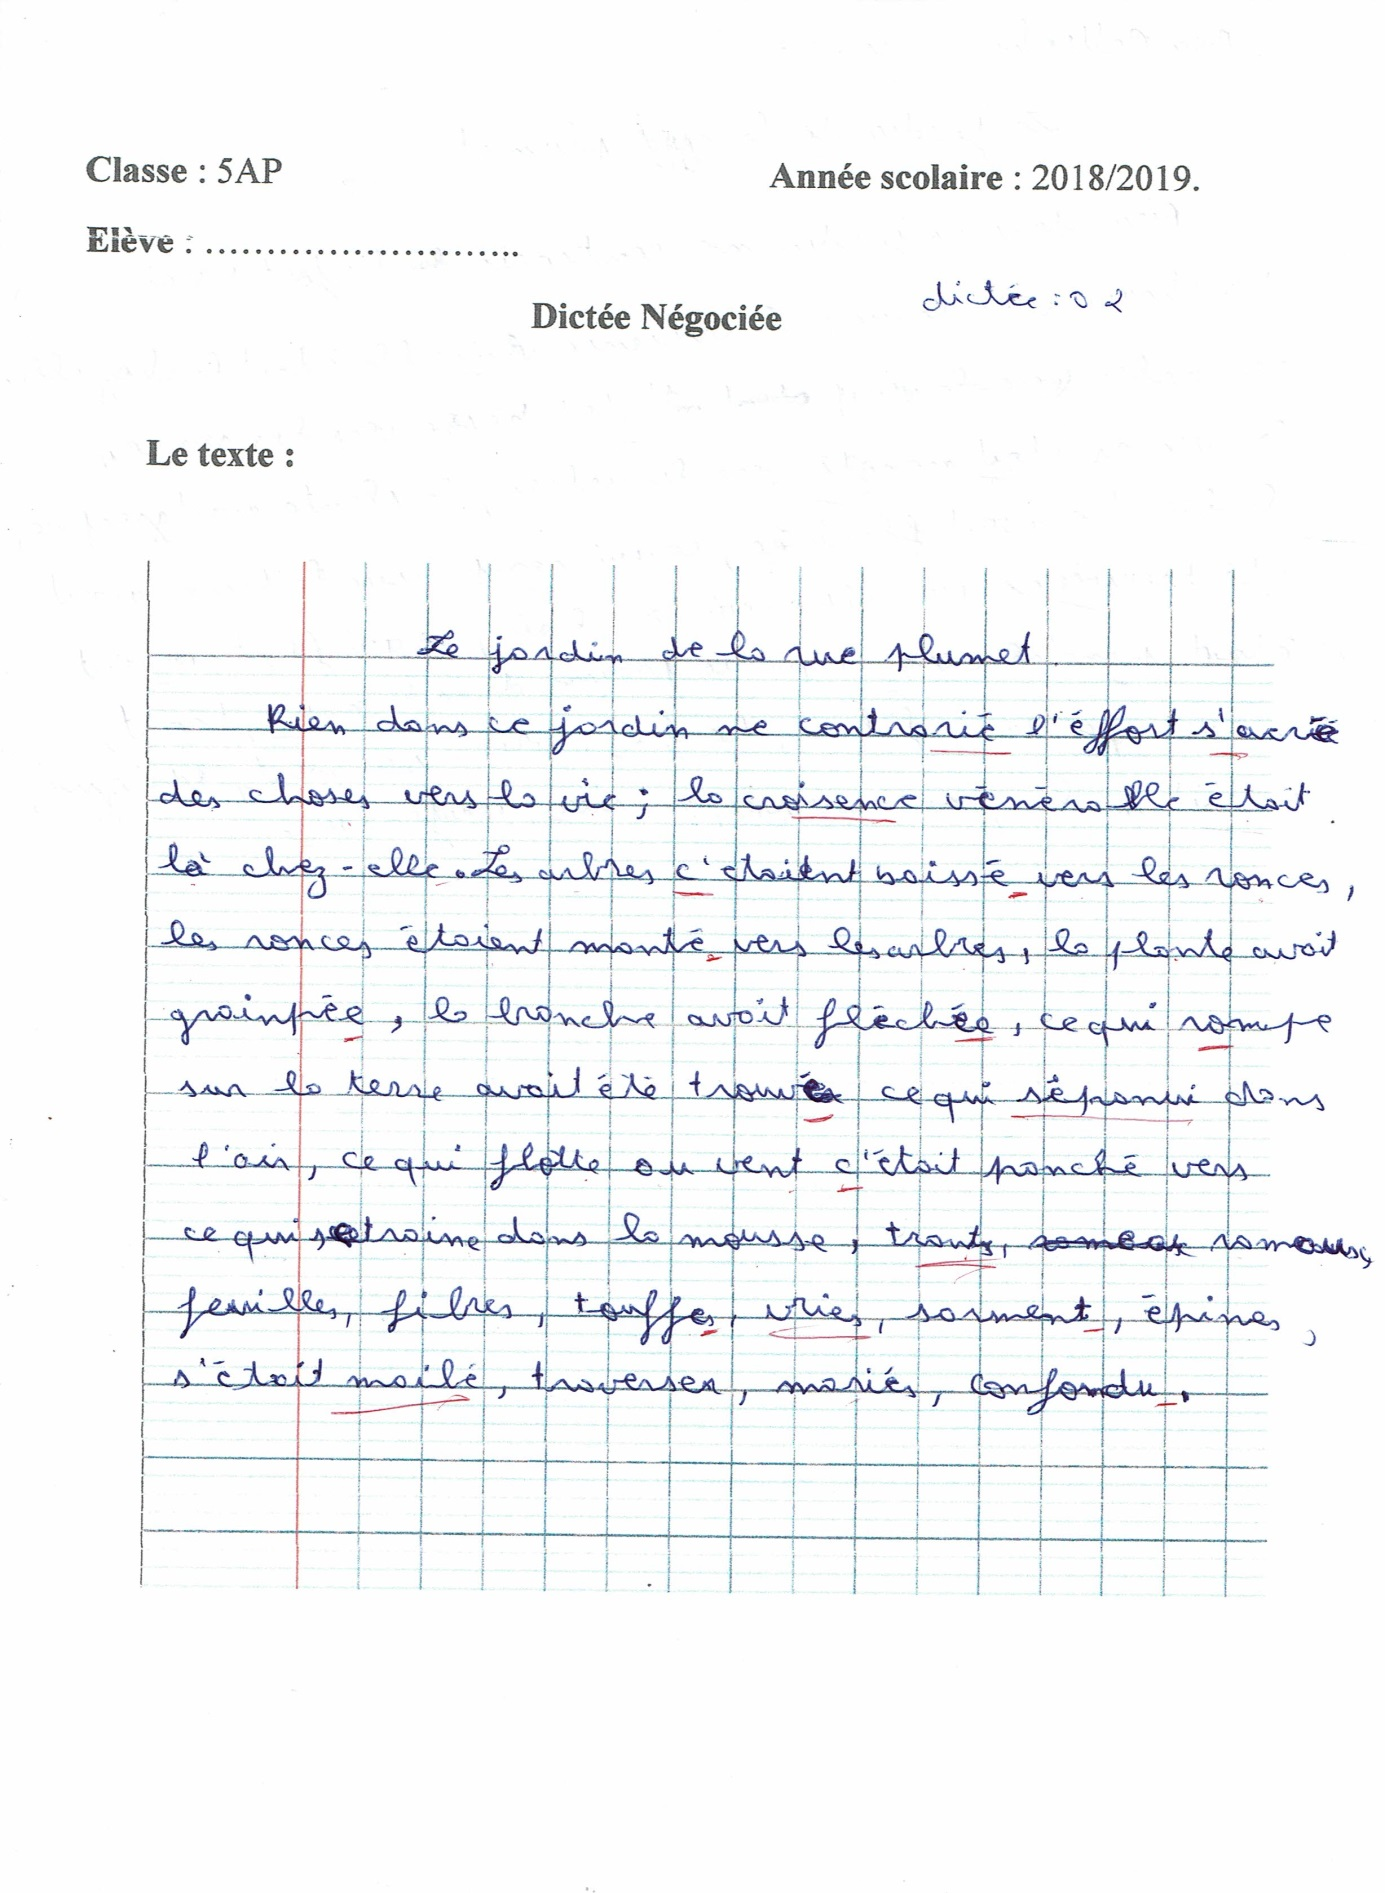 Classe : 5AP
Année scolaire : 2018/2019.
Elève : ..............................
dictée : 02
Dictée Négociée
Le texte :
Le jardin de la rue plumet
Rien dans ce jardin ne contrarié l'éffort s'acrié
des choses vers la vie ; la croisence vénéralle était
là chez-elle. Les arbres c'étaient baissé vers les ronces,
les ronces étaient monté vers les arbres, la plante avait
grainpée, la branche avait fléchée, ce qui rompe
sur la terre avait été trouvé ce qui s'épanui dans
l'air, ce qui flotte ou vent c'était panché vers
ce qui se traine dans la mousse, tronts, rameaus,
feuilles, fibres, touffes, vries, sarment, épines,
s'était mailé, traverser, mariés, confondu.